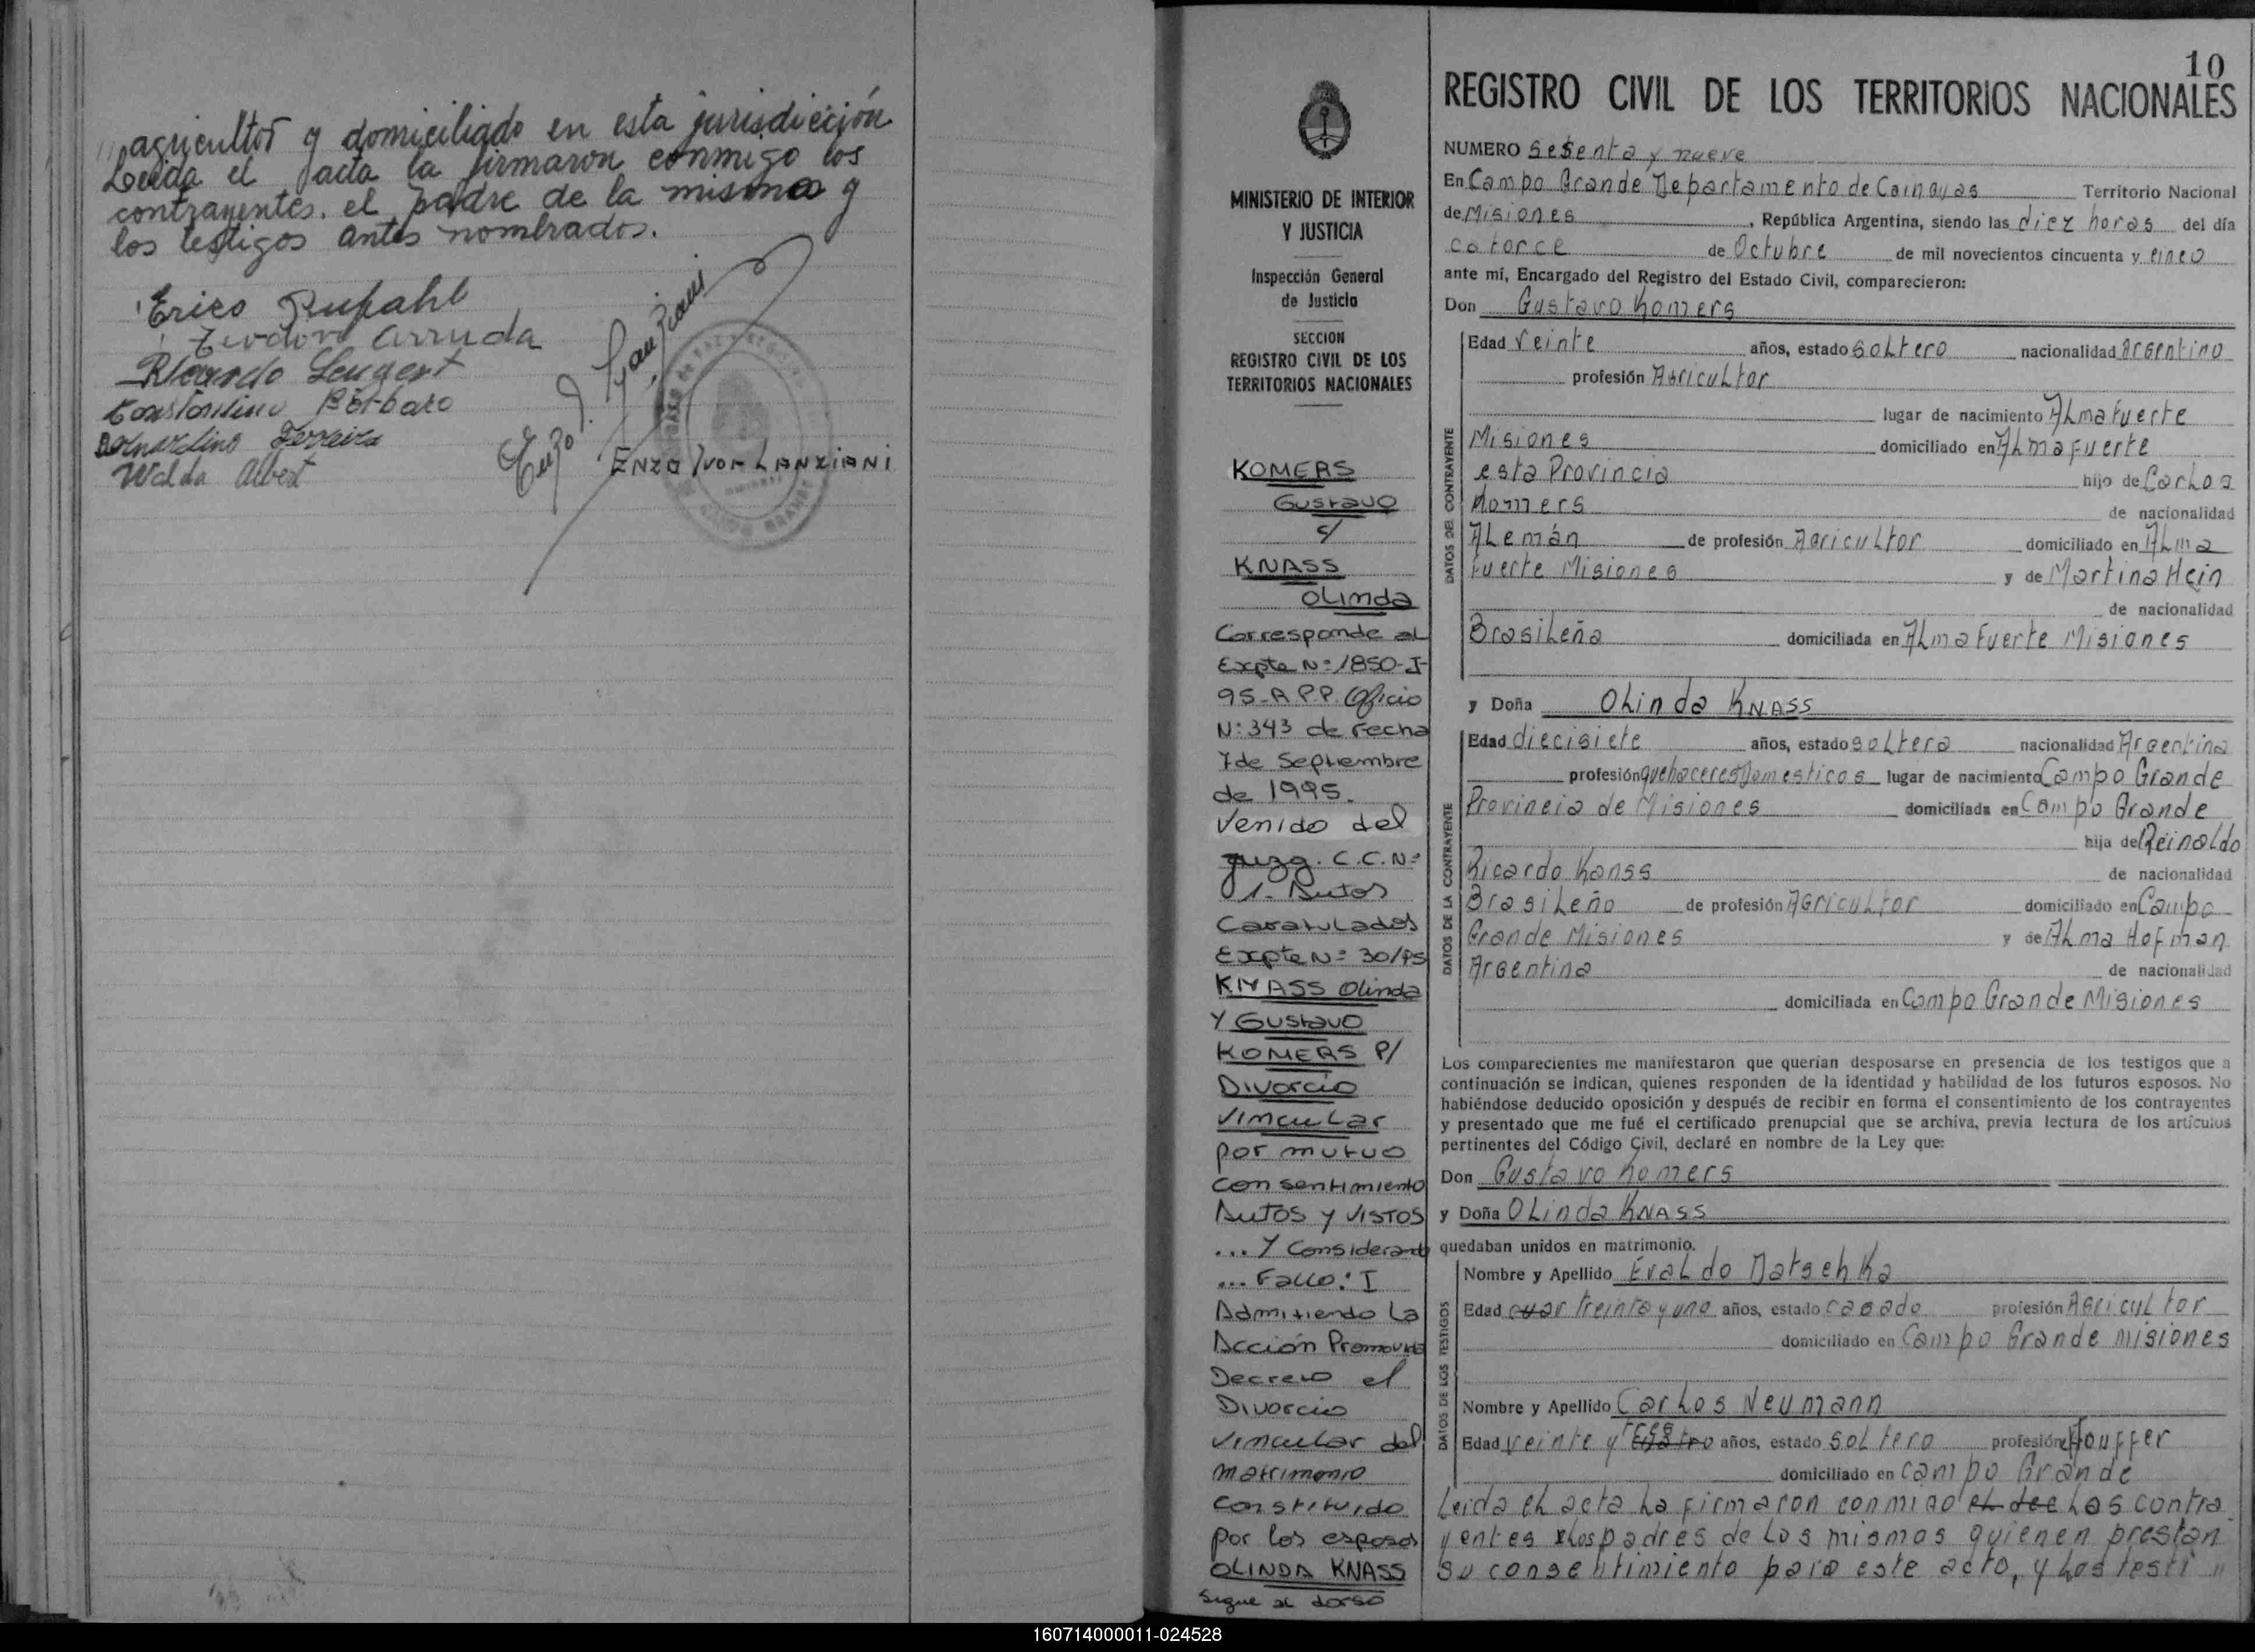 agricultor y domiciliado en esta jurisdicción.
Leida el acta la firmaron conmigo los
contrayentes. el padre de la misma y
los testigos antes nombrados.
Erico
Teodoro Arruda
Ricardo
Constantino
Bernardino Ferreira
Walda Albert
Enzo I. Lanziani
ENZO IVON LANZIANI
10
REGISTRO CIVIL DE LOS TERRITORIOS NACIONALES
MINISTERIO DE INTERIOR
Y JUSTICIA
Inspección General
de Justicia
SECCION
REGISTRO CIVIL DE LOS
TERRITORIOS NACIONALES
KOMERS
Gustavo
c/
KNASS
OLinda
Corresponde al
Expte Nº 1850-I-
95-A P.P. Oficio
Nº 343 de Fecha
7 de Septiembre
de 1995.
Venido del
Juzg. C.C. Nº
1. Autos
Caratulados
Expte Nº 30/95
KNASS Olinda
Y Gustavo
KOMERS P/
Divorcio
Vincular
por mutuo
consentimiento
Autos y VISTOS
... Y Considerando
... Fallo: I
Admitiendo La
Acción Promovida
Decreto el
Divorcio
Vincular del
matrimonio
constituido
por los esposos
OLINDA KNASS
Sigue al dorso
NUMERO Sesenta y nueve
En Campo Grande Departamento de Cainguas Territorio Nacional
de Misiones, República Argentina, siendo las diez horas del día
catorce de Octubre de mil novecientos cincuenta y cinco
ante mí, Encargado del Registro del Estado Civil, comparecieron:
Don Gustavo Komers
DATOS DEL CONTRAYENTE
Edad Veinte años, estado soltero nacionalidad Argentino
profesión Agricultor
lugar de nacimiento Alma Fuerte
Misiones domiciliado en Alma Fuerte
esta Provincia hijo de Carlos
Komers de nacionalidad
Alemán de profesión Agricultor domiciliado en Alma
Fuerte Misiones y de Martina Hein
de nacionalidad
Brasileña domiciliada en Alma Fuerte Misiones
y Doña Olinda KNASS
DATOS DE LA CONTRAYENTE
Edad diecisiete años, estado soltera nacionalidad Argentina
profesión quehaceres Domesticos lugar de nacimiento Campo Grande
Provincia de Misiones domiciliada en Campo Grande
hija de Reinaldo
Ricardo Kanss de nacionalidad
Brasileño de profesión Agricultor domiciliado en Campo
Grande Misiones y de Alma Hofman
Argentina de nacionalidad
domiciliada en Campo Grande Misiones
Los comparecientes me manifestaron que querían desposarse en presencia de los testigos que a
continuación se indican, quienes responden de la identidad y habilidad de los futuros esposos. No
habiéndose deducido oposición y después de recibir en forma el consentimiento de los contrayentes
y presentado que me fué el certificado prenupcial que se archiva, previa lectura de los artículos
pertinentes del Código Civil, declaré en nombre de la Ley que:
Don Gustavo Komers
y Doña Olinda KNASS
quedaban unidos en matrimonio.
DATOS DE LOS TESTIGOS
Nombre y Apellido Evaldo Datschka
Edad cuar treinta y uno años, estado casado profesión Agricultor
domiciliado en Campo Grande misiones
Nombre y Apellido Carlos Neumann
Edad veinte y tres cuatro años, estado soltero profesión chouffer
domiciliado en Campo Grande
Leida el acta la firmaron conmigo el dec los contra
yentes los padres de los mismos quienen prestan
su consentimiento para este acto, y los testi "
160714000011-024528